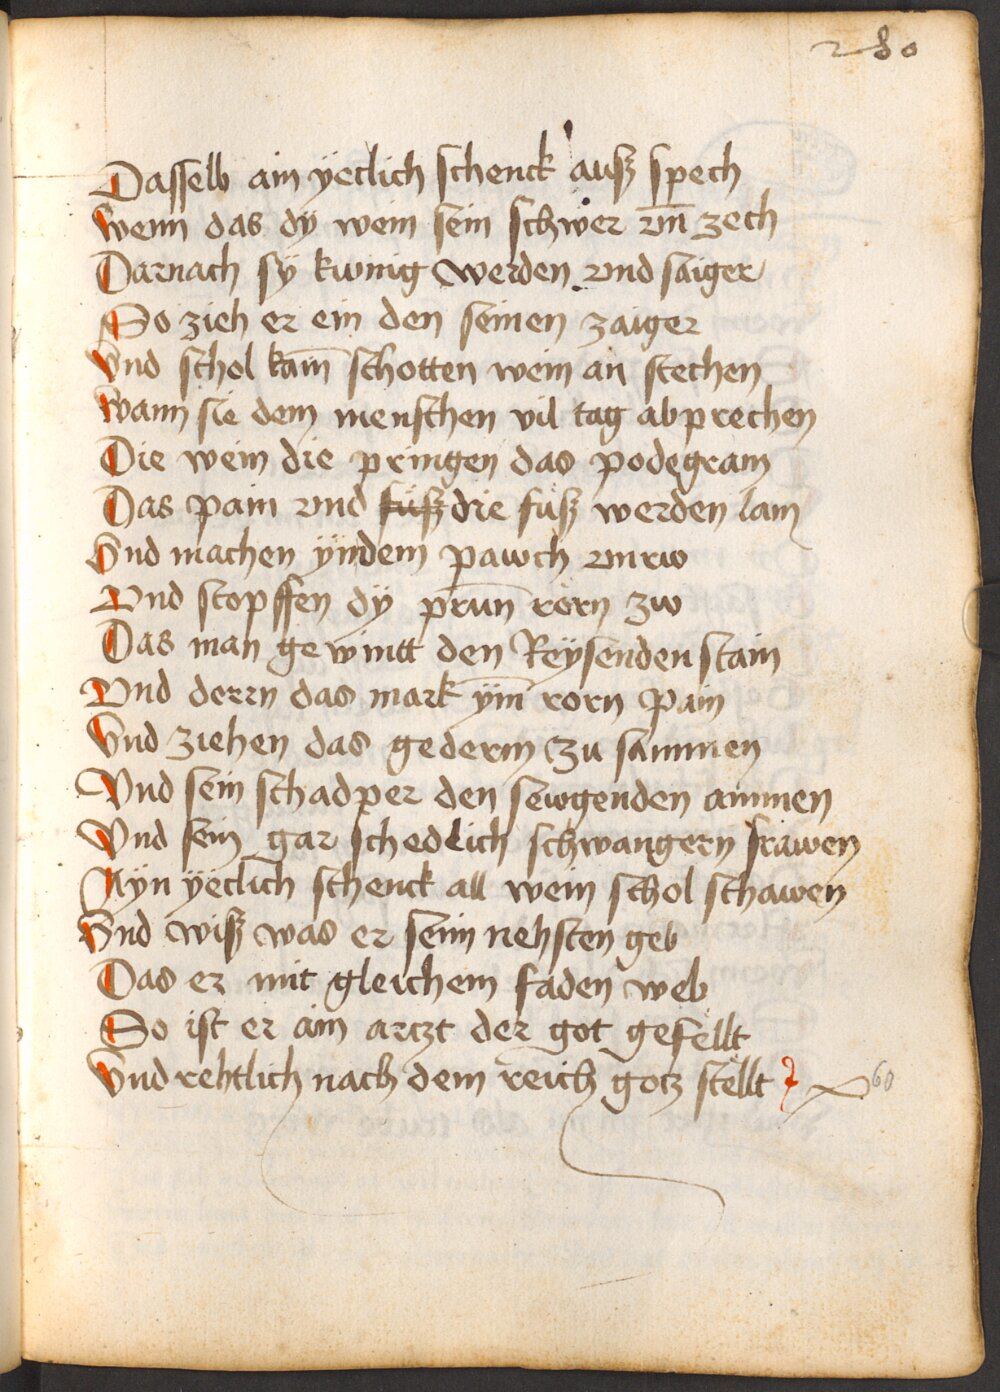 280
Dasselb ain yeclich schenck auß spech
Wenn das dy wein sein schwer vm̄ zech
Darnach sy kwnig werden vnd saiger
So zich er ein den seinen zaiger
Vnd schol kain̄ schotten wein an stechen
Wann sie dem menschen vil tag abprechen
Die wein die pringen das podegram
Das pain vnd füß die füß werden lam
Vnd machen yndem pawch vnrw
Vnd stopffen dy prun̄ rörn zw
Das man gewintt den Reysenden stain
Vnd derrn das mark ym̄ rorn pain
Vnd ziehen das gederm zu sammen
Vnd sein schadper den sewgenden ammen
Vnd sein gar schedlich schwangern frawen
Ayn yeclich schenck all wein schol schawen
Vnd wiß was er seim nehsten geb
Das er mit gleichem faden web
So ist er ain arczt der got gefellt
Vnd rehtlich nach dem reich gotz stellt 60